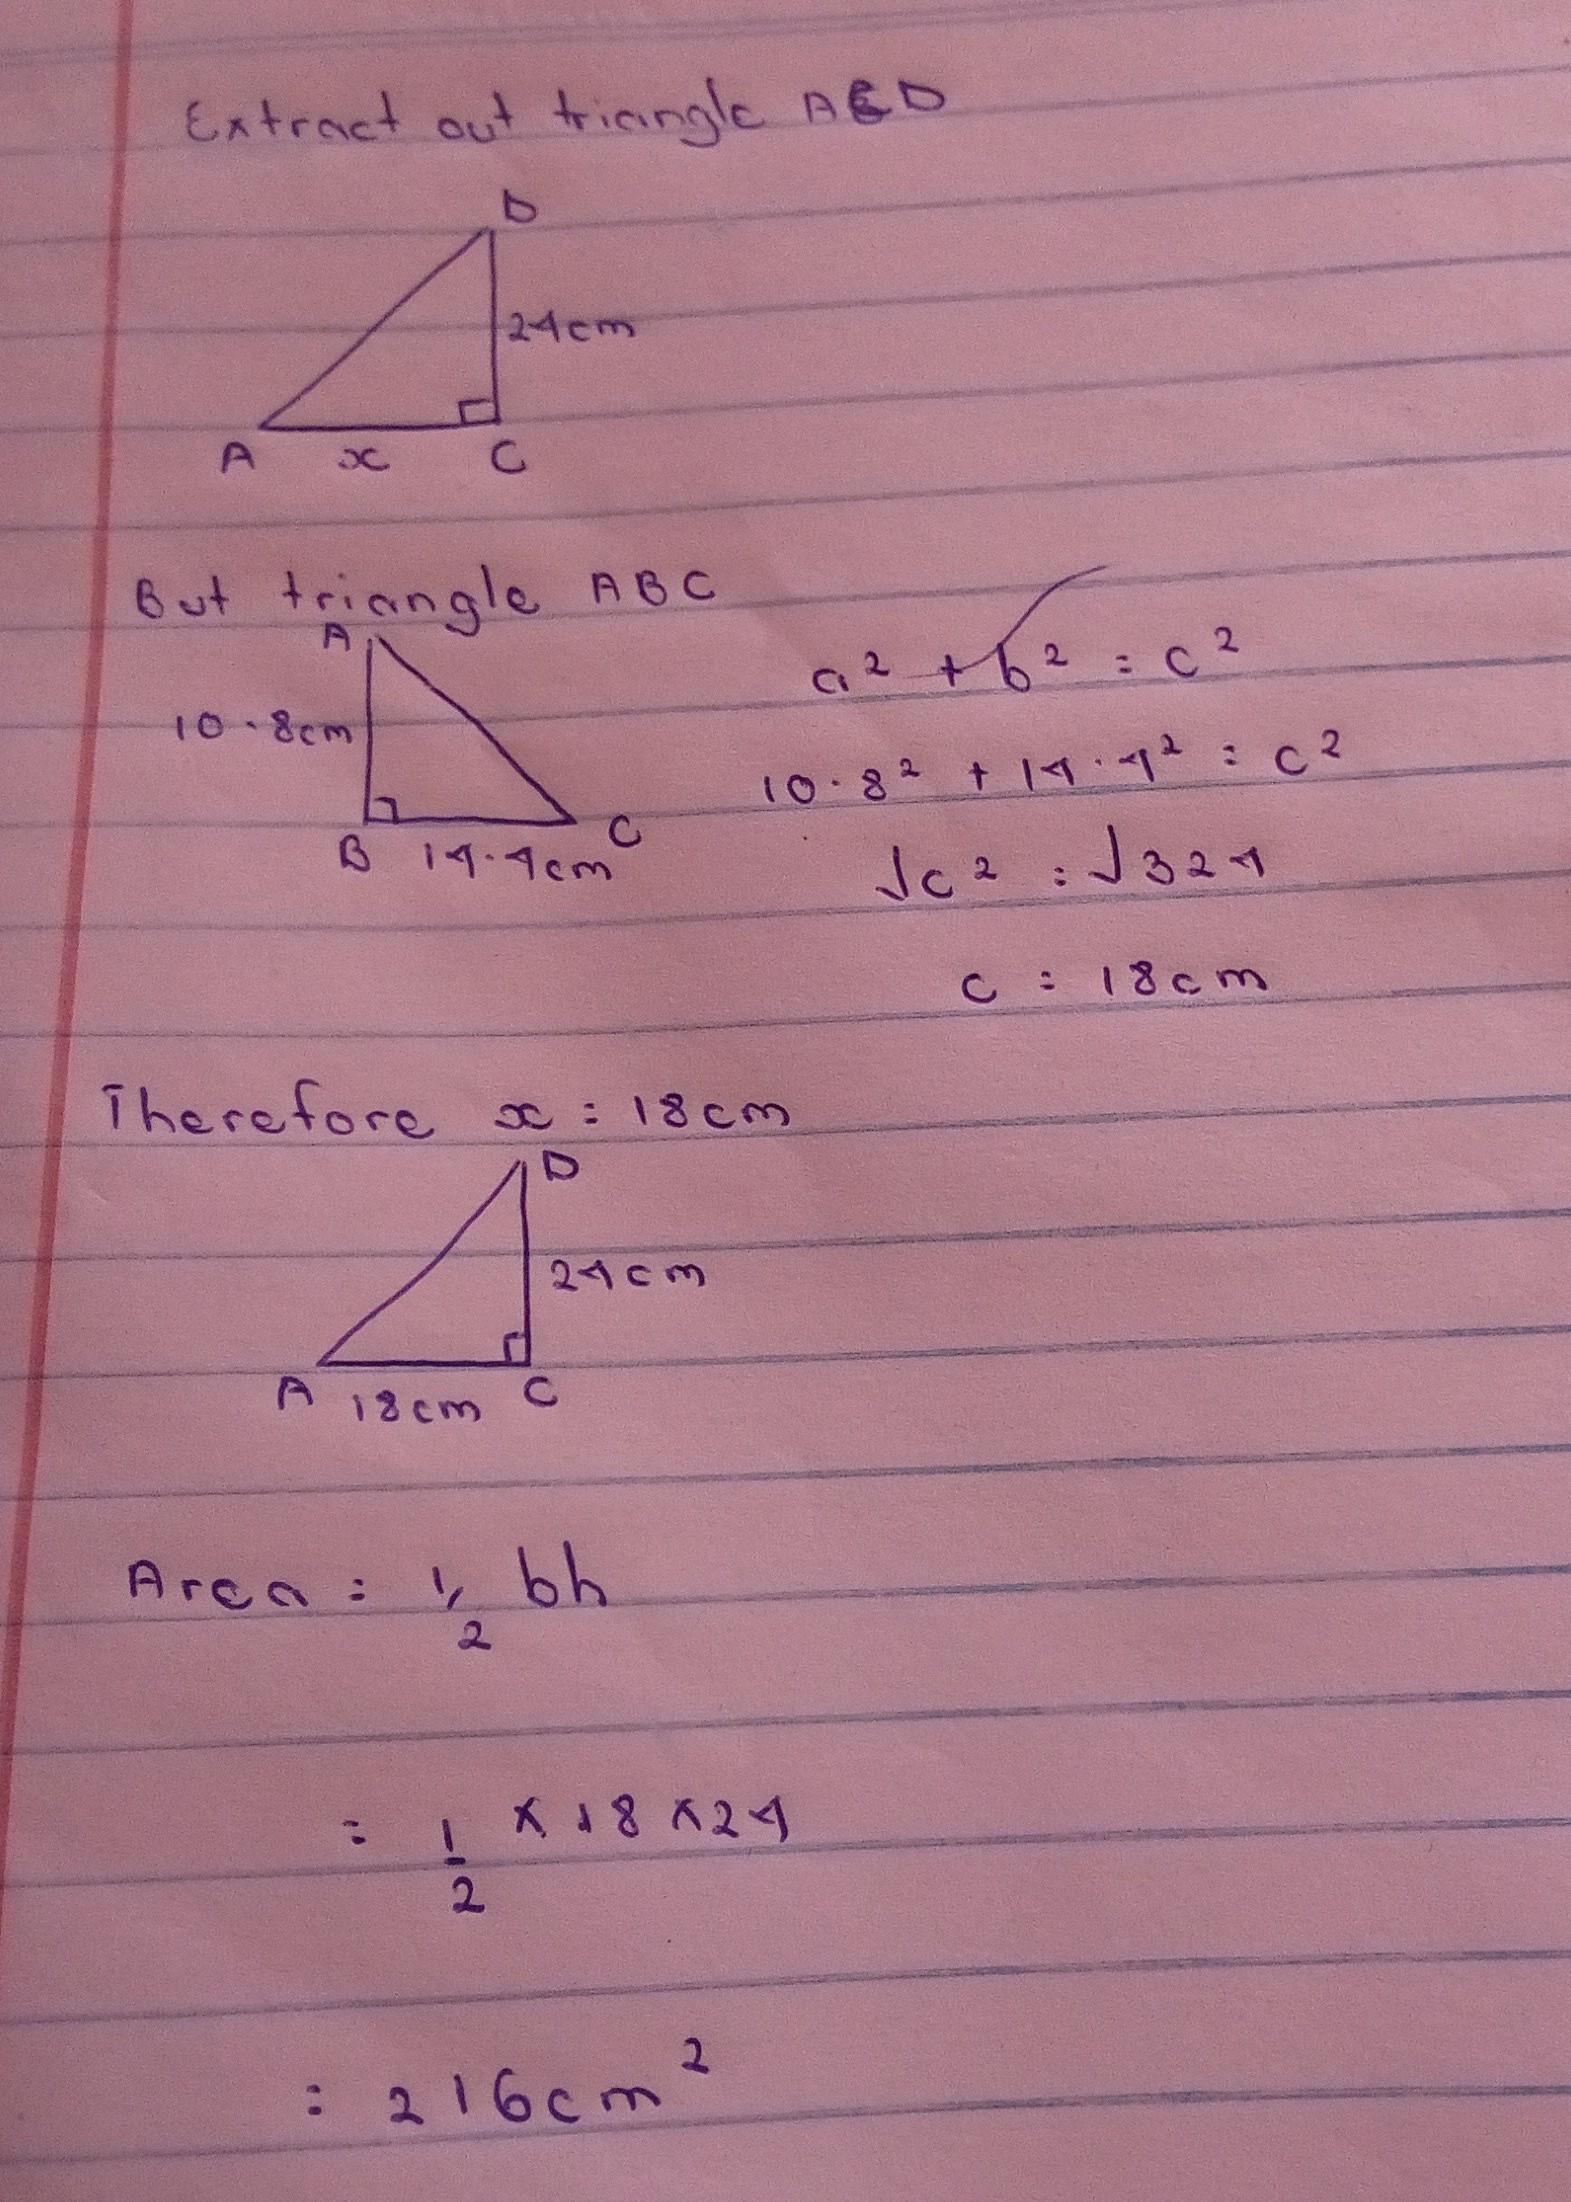 Extract out triangle ACD
D
24cm
A x C
But triangle ABC
A
10.8cm
B 14.4cm C
a² + b² = c²
10.8² + 14.4² = c²
√c² = √324
c = 18cm
Therefore x = 18cm
D
24cm
A 18cm C
Area = 1/2 bh
= 1/2 × 18 × 24
= 216cm²